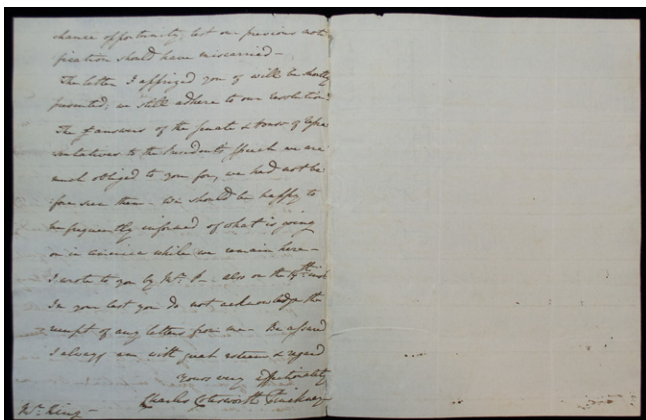 chance opportunity, lest our previous noti
fication should have miscarried –
The letter I apprized you of will be shortly
presented; we still adhere to our resolution.
The answers of the Senate & House of Repre
sentatives to the President's speech we are
much obliged to you for, we had not be
fore seen them – We should be happy to
be frequently informed of what is going
on in America while we remain here –
I wrote to you by Mr. P– also on the inst
In your last you do not acknowledge the
receipt of any letters from me – Be assured
I always am with great esteem & regard
yours very affectionately
Charles Cotesworth Pinckney
Mr. King –